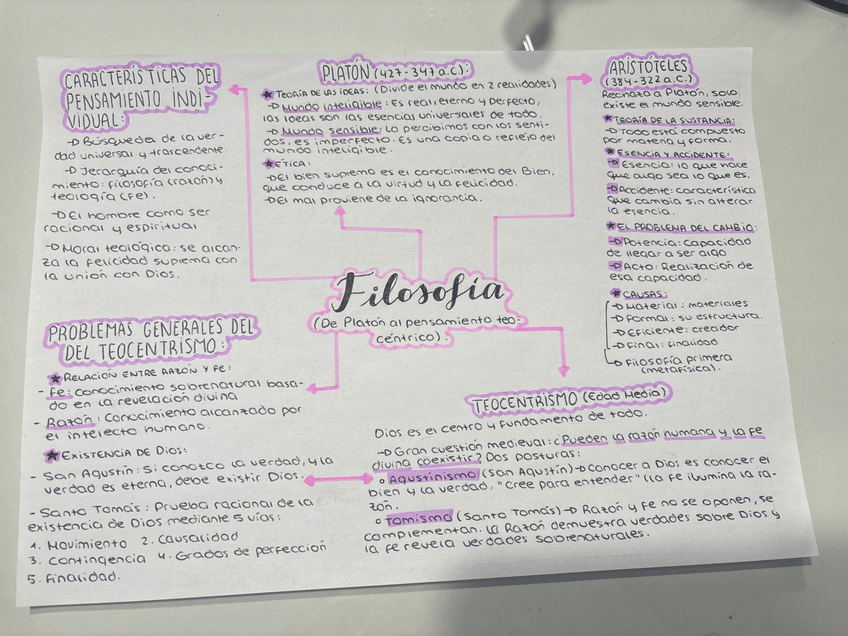 CARACTERÍSTICAS DEL
PENSAMIENTO INDI-
VIDUAL:
→ Búsqueda de la ver-
dad universal y trascendente.
→ Jerarquía del conoci-
miento: filosofía (razón) y
teología (fe).
→ El hombre como ser
racional y espiritual
→ Moral teológica: se alcan-
za la felicidad suprema con
la unión con Dios.
PLATÓN (427-347 a.C.):
★ TEORÍA DE LAS IDEAS: (Divide el mundo en 2 realidades)
→ Mundo inteligible: Es real, eterno y perfecto,
las ideas son las esencias universales de todo.
→ Mundo sensible: Lo percibimos con los senti-
dos, es imperfecto. Es una copia o reflejo del
mundo inteligible.
★ ÉTICA:
→ El bien supremo es el conocimiento del Bien,
que conduce a la virtud y la felicidad.
→ El mal proviene de la ignorancia.
ARISTÓTELES
(384-322 a.C.)
Rechaza a Platón, solo
existe el mundo sensible.
★ TEORÍA DE LA SUSTANCIA:
→ Todo está compuesto
por materia y forma.
★ ESENCIA Y ACCIDENTE:
→ Esencia: lo que hace
que algo sea lo que es.
→ Accidente: característica
que cambia sin alterar
la esencia.
★ EL PROBLEMA DEL CAMBIO:
→ Potencia: capacidad
de llegar a ser algo
→ Acto: Realización de
esa capacidad.
★ CAUSAS:
→ Material: materiales
→ Formal: su estructura.
→ Eficiente: creador
→ Final: finalidad
→ Filosofía primera
(metafísica).
Filosofía
(De Platón al pensamiento teo-
céntrico).
PROBLEMAS GENERALES DEL
DEL TEOCENTRISMO:
★ RELACIÓN ENTRE RAZÓN Y FE:
- Fe: conocimiento sobrenatural basa-
do en la revelación divina
- Razón: Conocimiento alcanzado por
el intelecto humano.
★ EXISTENCIA DE DIOS:
- San Agustín: Si conozco la verdad, y la
verdad es eterna, debe existir Dios.
- Santo Tomás: Prueba racional de la
existencia de Dios mediante 5 vías:
1. Movimiento 2. Causalidad
3. Contingencia 4. Grados de perfección
5. Finalidad.
TEOCENTRISMO (Edad Media)
Dios es el centro y fundamento de todo.
→ Gran cuestión medieval: ¿Pueden la razón humana y la fe
divina coexistir? Dos posturas:
○ Agustinismo (San Agustín) → Conocer a Dios es conocer el
bien y la verdad, "Cree para entender" (la fe ilumina la ra-
zón.
○ Tomismo (Santo Tomás) → Razón y Fe no se oponen, se
complementan. La Razón demuestra verdades sobre Dios y
la fe revela verdades sobrenaturales.